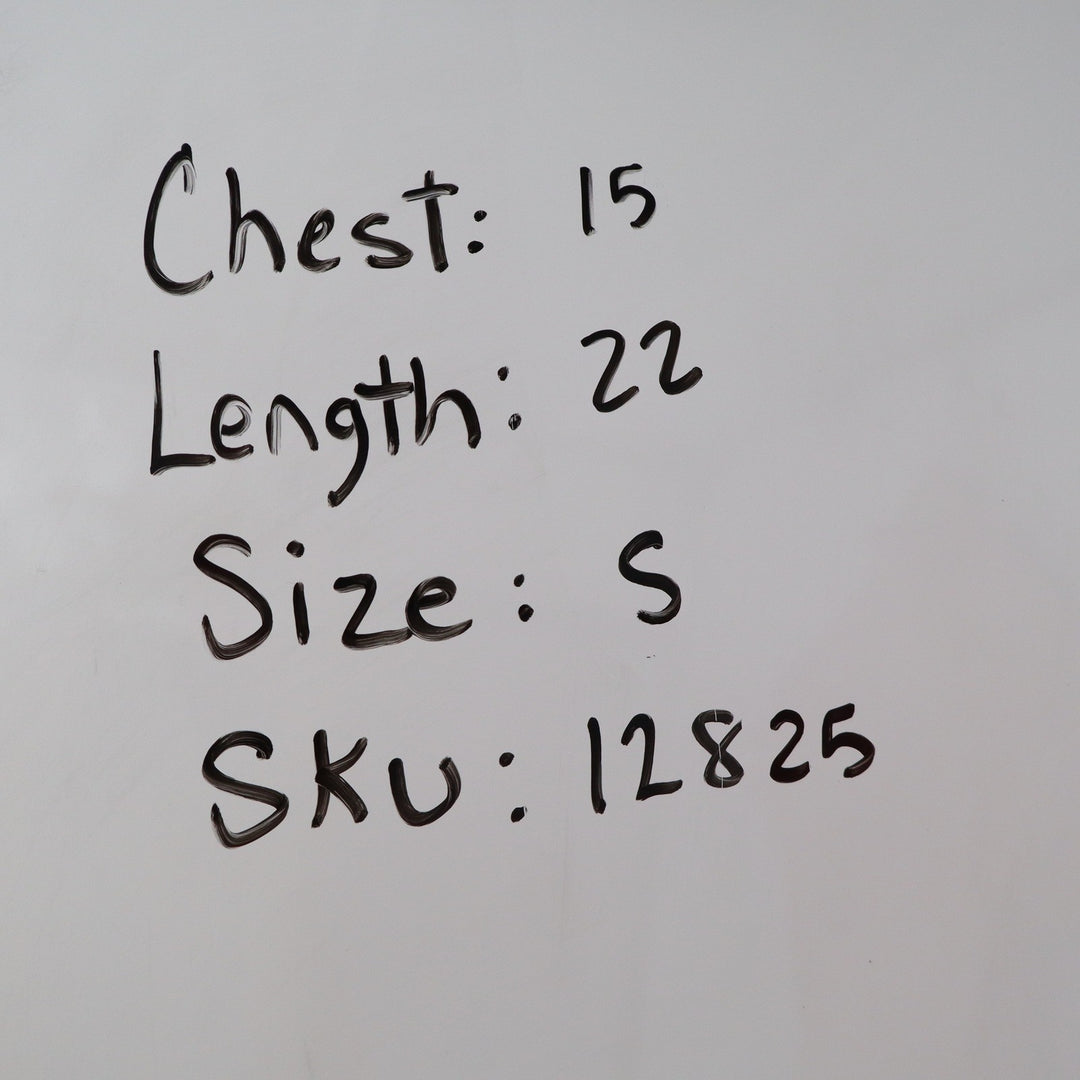 Chest: 15
Length: 22
Size: S
SKU: 12825